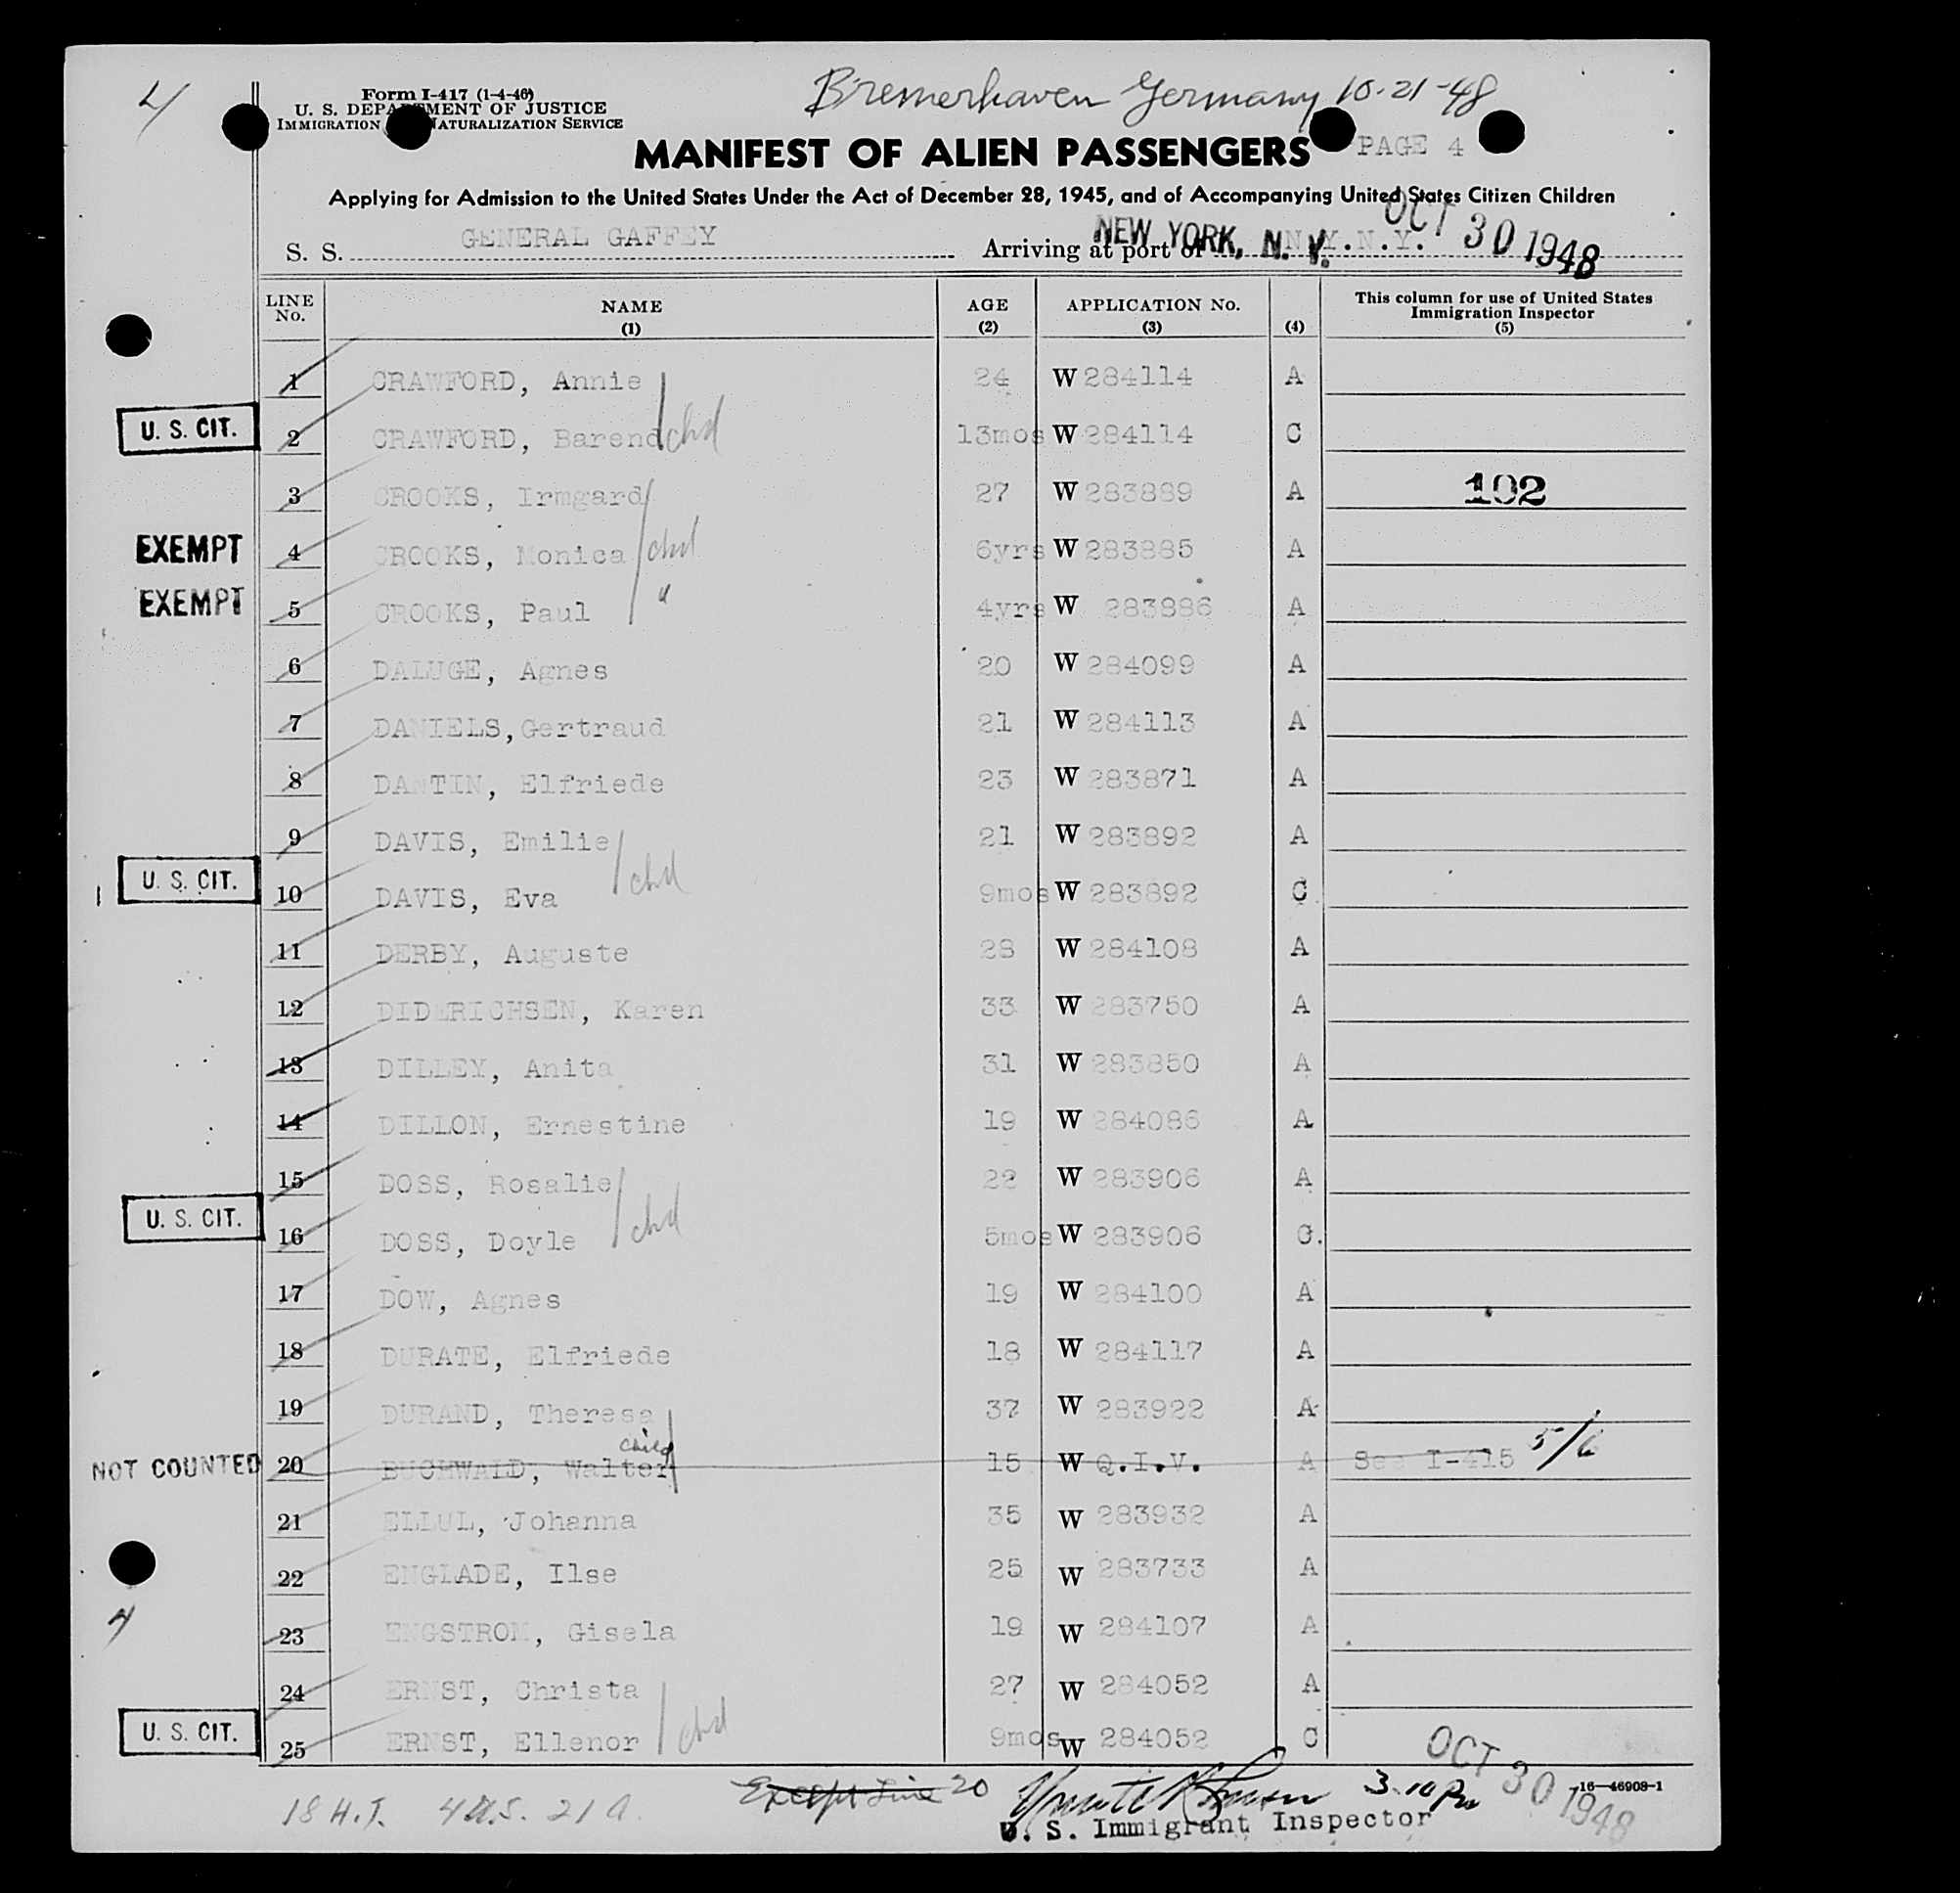 4
Form I-417 (1-4-46)
U. S. DEPARTMENT OF JUSTICE
IMMIGRATION NATURALIZATION SERVICE
Bremerhaven Germany 10-21-48
MANIFEST OF ALIEN PASSENGERS PAGE 4
Applying for Admission to the United States Under the Act of December 28, 1945, and of Accompanying United States Citizen Children
S. S. GENERAL GAFFEY Arriving at port of NEW YORK, N. Y. N.Y.N.Y. OCT 30 1948
LINE No. NAME (1) AGE (2) APPLICATION No. (3) (4) This column for use of United States Immigration Inspector (5)
1 CRAWFORD, Annie 24 W 284114 A
U. S. CIT. 2 CRAWFORD, Barend chd 13mos W 284114 C
3 CROOKS, Irmgard 27 W 283889 A 102
EXEMPT 4 CROOKS, Monica chd 6yrs W 283885 A
EXEMPT 5 CROOKS, Paul " 4yrs W 283886 A
6 DALUGE, Agnes 20 W 284099 A
7 DANIELS, Gertraud 21 W 284113 A
8 DANTIN, Elfriede 23 W 283871 A
9 DAVIS, Emilie 21 W 283892 A
U. S. CIT. 10 DAVIS, Eva chd 9mos W 283892 C
11 DERBY, Auguste 28 W 284108 A
12 DIDERICHSEN, Karen 33 W 283750 A
13 DILLEY, Anita 31 W 283850 A
14 DILLON, Ernestine 19 W 284086 A
15 DOSS, Rosalie 22 W 283906 A
U. S. CIT. 16 DOSS, Doyle chd 5mos W 283906 C.
17 DOW, Agnes 19 W 284100 A
18 DURATE, Elfriede 18 W 284117 A
19 DURAND, Theresa 37 W 283922 A
NOT COUNTED 20 BUCHWALD, Walter child 15 W Q.I.V. A See I-415 5/6
21 ELLUL, Johanna 35 W 283932 A
22 ENGLADE, Ilse 25 W 283733 A
4 23 ENGSTROM, Gisela 19 W 284107 A
24 ERNST, Christa 27 W 284052 A
U. S. CIT. 25 ERNST, Ellenor chd 9mos W 284052 C
OCT 30 1948
Except Line 20 3.10 Pm 16—46908-1
18 H.T. 4 U.S. 21 A.
U. S. Immigrant Inspector